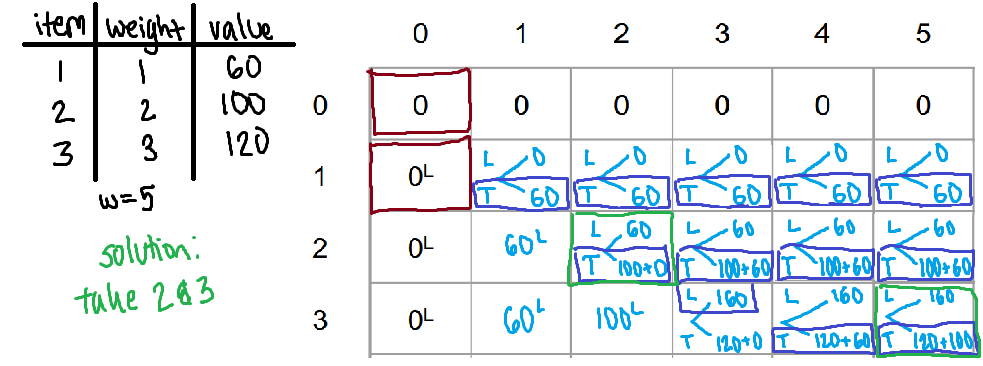 item weight value
1 1 60
2 2 100
3 3 120
w=5
solution:
take 2&3
0 1 2 3 4 5
0 0 0 0 0 0 0
1 0ᴸ L 0 L 0 L 0 L 0 L 0
T 60 T 60 T 60 T 60 T 60
2 0ᴸ 60ᴸ L 60 L 60 L 60 L 60
T 100+0 T 100+60 T 100+60 T 100+60
3 0ᴸ 60ᴸ 100ᴸ L 160 L 160 L 160
T 120+0 T 120+60 T 120+100